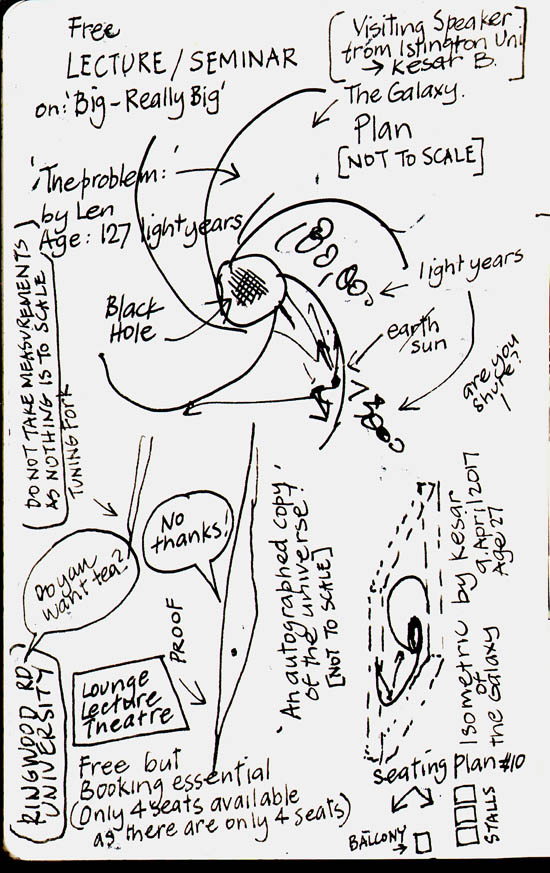 Free
LECTURE/SEMINAR
on: 'Big-Really Big'
[Visiting Speaker
from Istington Uni
→ Kesar B.]
The Galaxy.
Plan
[NOT TO SCALE]
'The problem:'
by Len
Age: 127 light years
DO NOT TAKE MEASUREMENTS
AS NOTHING IS TO SCALE
TUNING FORK
Black
Hole
100,000
light years
earth/
sun
are you
shure?!
No
thanks!
Do you
want tea?
PROOF
'An autographed copy
of the universe!'
[NOT TO SCALE]
Isometric by Kesar
of 9 April 2017
the Galaxy Age 27
RINGWOOD RD
UNIVERSITY
Lounge
Lecture
Theatre
Free but
Booking essential
(Only 4 seats available
as there are only 4 seats)
Seating Plan #10
BALLCONY →
STALLS